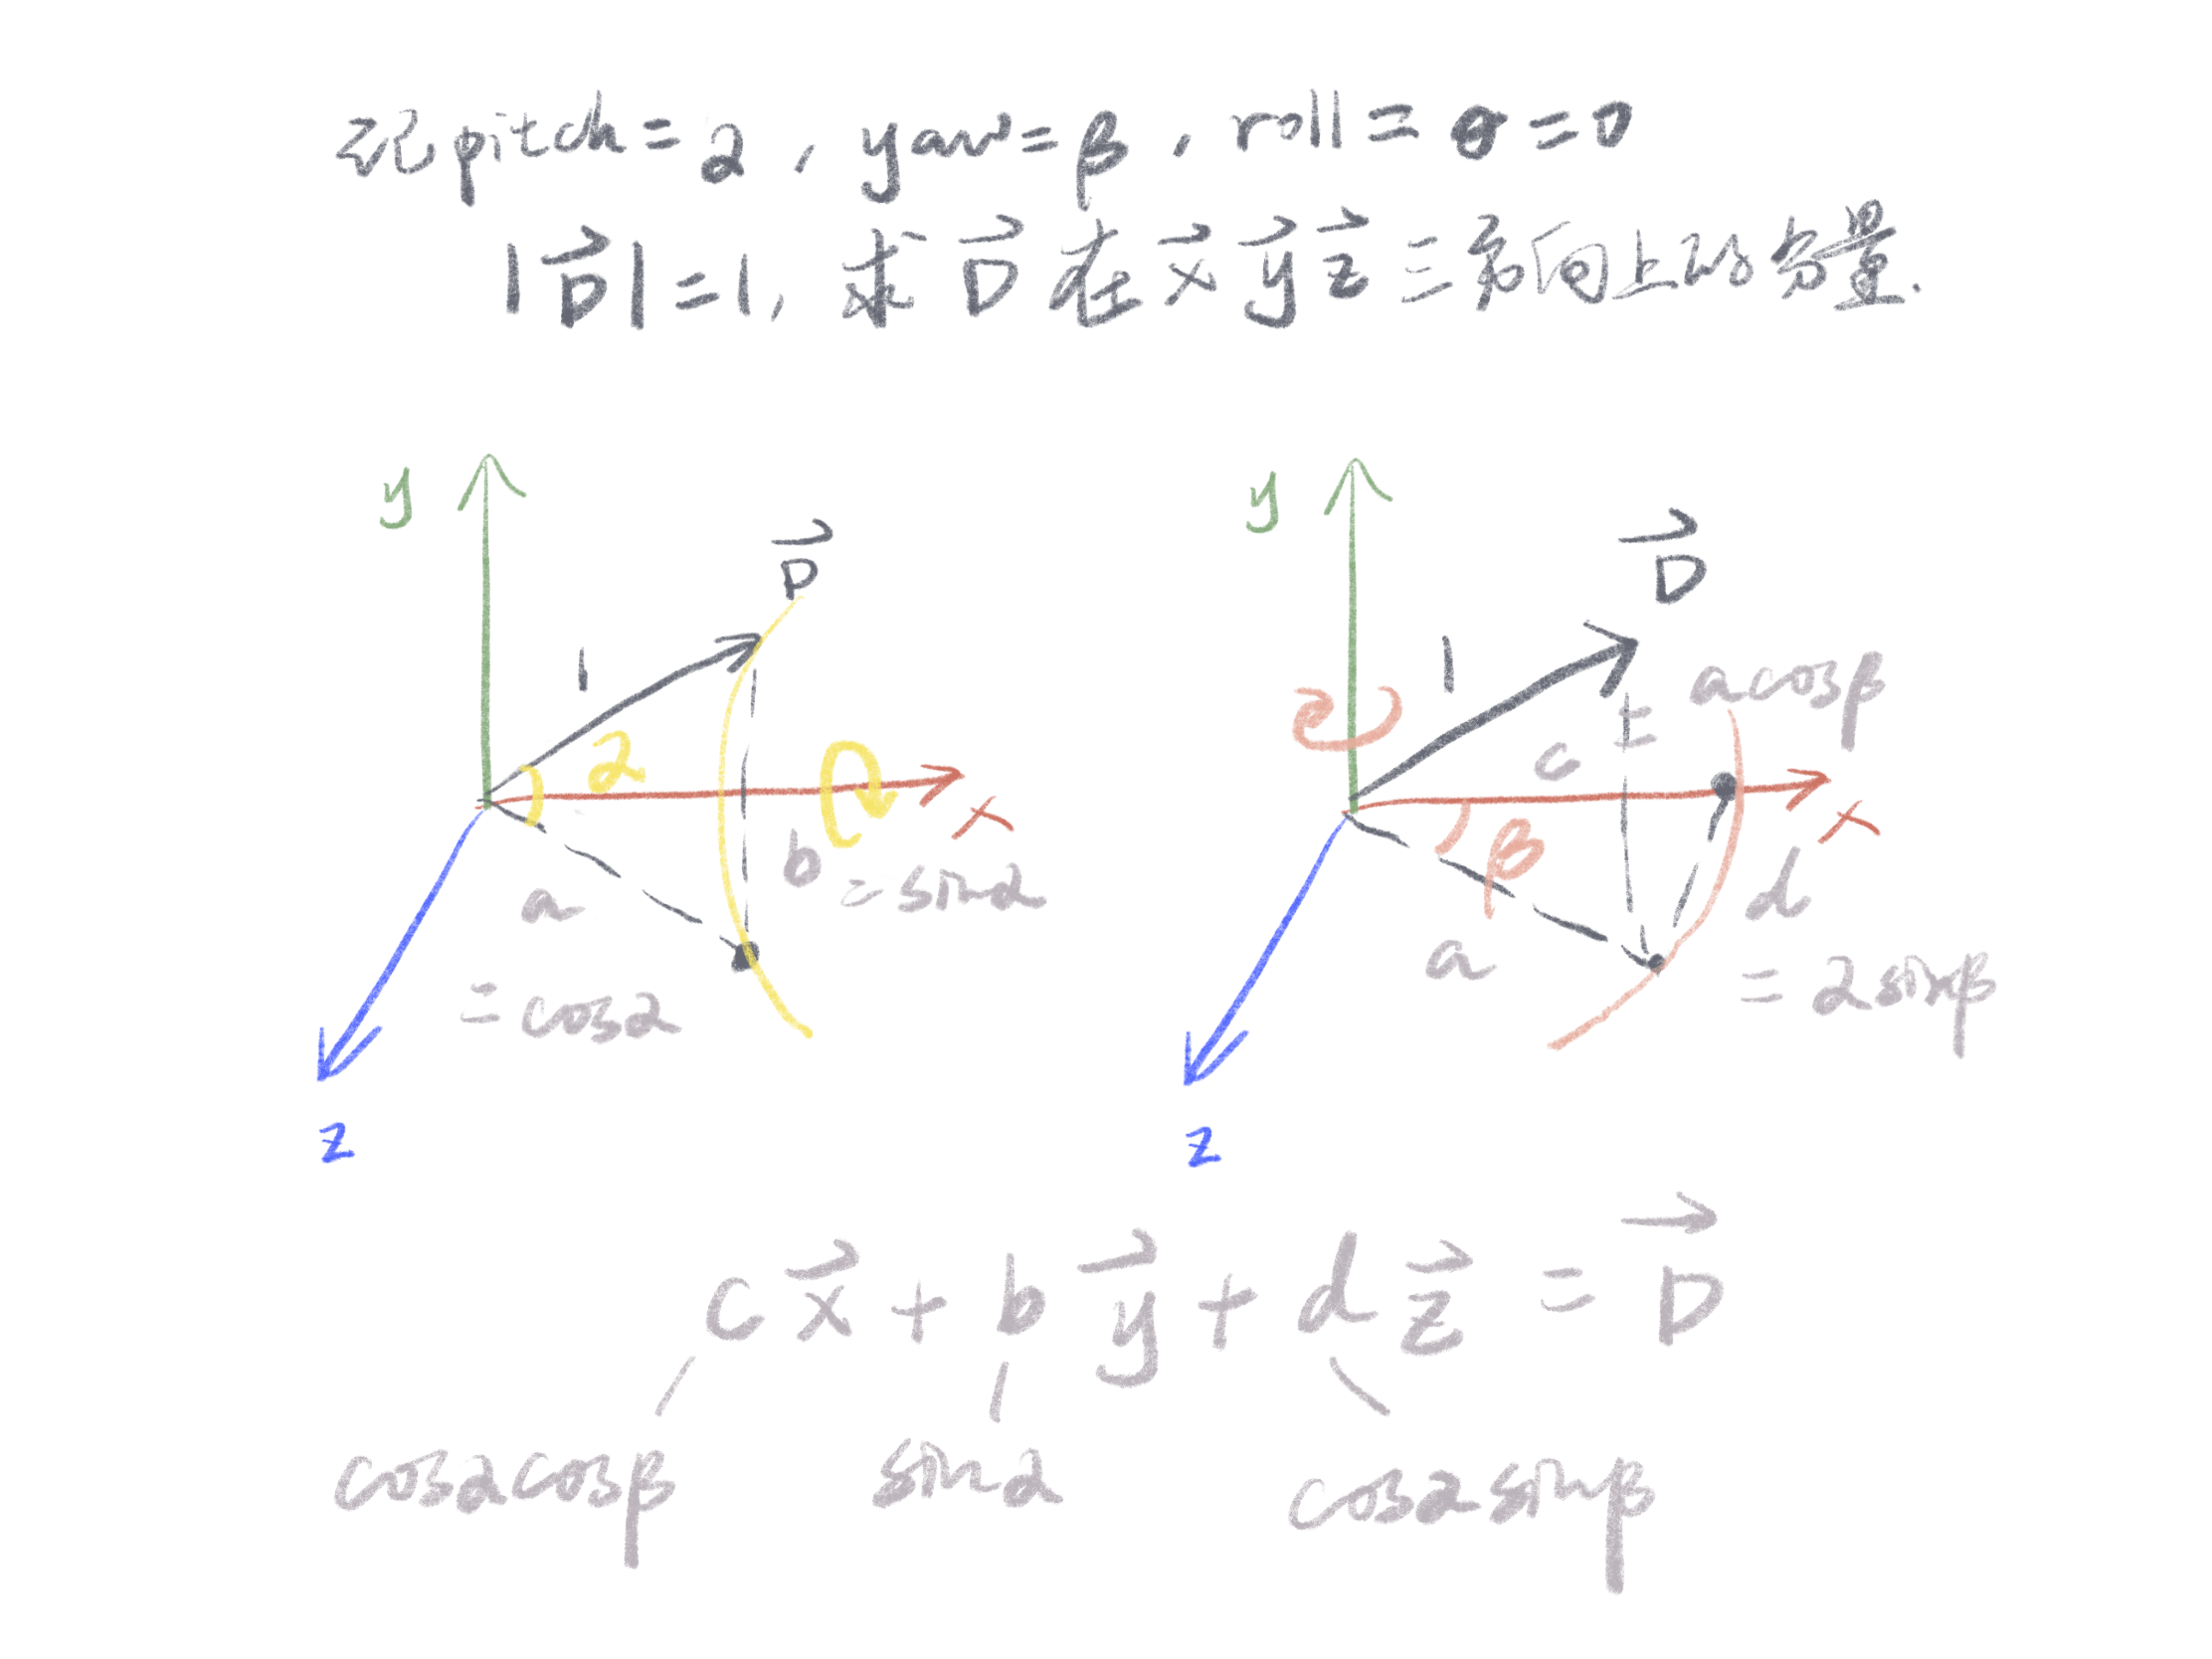 记pitch=α, yaw=β, roll=θ=0
|D⃗|=1, 求 D⃗ 在 x⃗ y⃗ z⃗ 三方向上的分量.
y
D⃗
1
α
x
b
=sinα
a
=cosα
z
y
D⃗
1
acosβ
=
c
x
β
d
=αsinβ
a
z
cx⃗+by⃗+dz⃗=D⃗
cosαcosβ
sinα
cosαsinβ